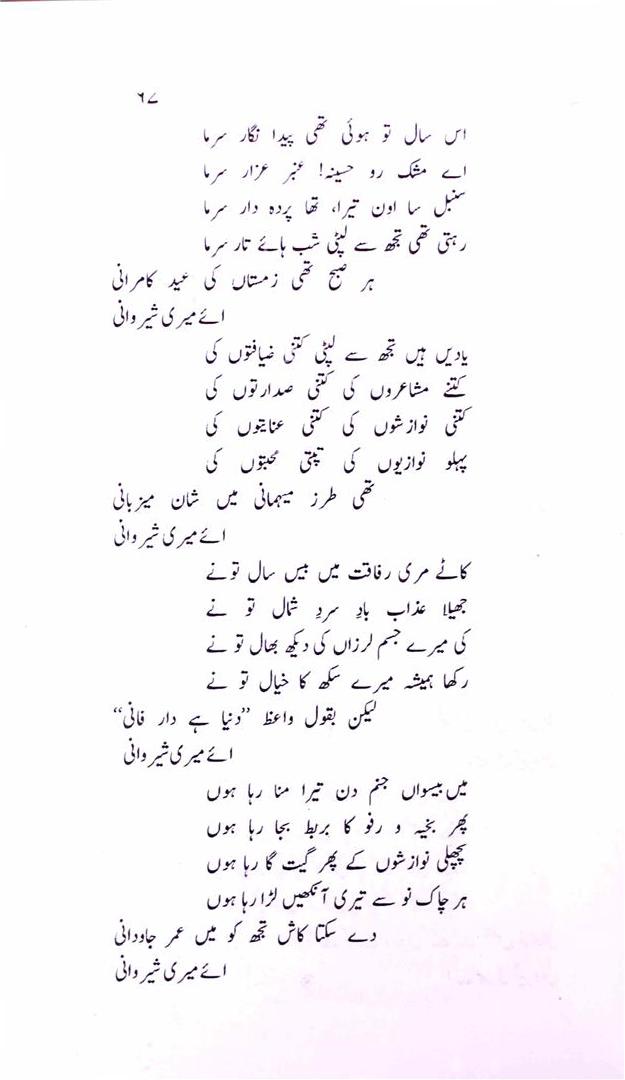 ۶۷
اس سال تو ہوئی تھی پیدا نگار سرما
اے مشک رو حسینہ! عنبر عزار سرما
سنبل سا اون تیرا، تھا پردہ دار سرما
رہتی تھی تجھ سے لپٹی شب ہائے تار سرما
ہر صبح تھی زمستاں کی عید کامرانی
ائے میری شیروانی
یادیں ہیں تجھ سے لپٹی کتنی ضیافتوں کی
کتنے مشاعروں کی کتنی صدارتوں کی
کتنی نوازشوں کی کتنی عنایتوں کی
پہلو نوازیوں کی تپتی محبتوں کی
تھی طرز میہمانی میں شان میزبانی
ائے میری شیروانی
کاٹے مری رفاقت میں بیس سال تو نے
جھیلا عذاب بادِ سردِ شمال تو نے
کی میرے جسم لرزاں کی دیکھ بھال تو نے
رکھا ہمیشہ میرے سکھ کا خیال تو نے
لیکن بقول واعظ ”دنیا ہے دار فانی“
ائے میری شیروانی
میں بیسواں جنم دن تیرا منا رہا ہوں
پھر بخیہ و رفو کا بربط بجا رہا ہوں
پچھلی نوازشوں کے پھر گیت گا رہا ہوں
ہر چاک نو سے تیری آنکھیں لڑا رہا ہوں
دے سکتا کاش تجھ کو میں عمر جاودانی
ائے میری شیروانی